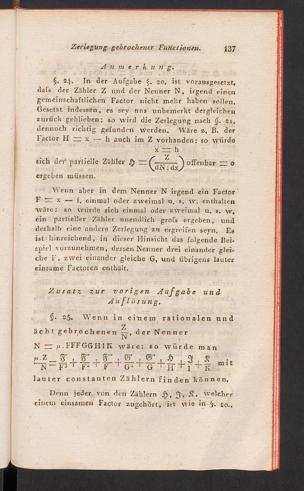 Zerlegung gebrochener Functionen. 137
Anmerkung.
§. 24. In der Aufgabe §. 20, ist vorausgesetzt,
daſs der Zähler Z und der Nenner N, irgend einen
gemeinschaftlichen Factor nicht mehr haben sollen.
Gesetzt indessen, es sey uns unbemerkt dergleichen
zurück geblieben; so wird die Zerlegung nach §. 21.
dennoch richtig gefunden werden. Wäre z. B. der
Factor H = x — h auch im Z vorhanden: so würde
x = h
sich der partielle Zähler ℌ = (Z / dN : dx) offenbar = 0
ergeben müssen.
Wenn aber in dem Nenner N irgend ein Factor
F = x — f, einmal oder zweimal u. s. w. enthalten
wäre: so würde sich einmal oder zweimal u. s. w.
ein partieller Zähler unendlich groſs ergeben, und
deshalb eine andere Zerlegung zu ergreifen seyn. Es
ist hinreichend, in dieser Hinsicht das folgende Bei-
spiel vorzunehmen, dessen Nenner drei einander glei-
che F, zwei einander gleiche G, und übrigens lauter
einsame Factoren enthält.
Zusatz zur vorigen Aufgabe und
Auflösung.
§. 25. Wenn in einem rationalen und
ächt gebrochenen Z/N, der Nenner
N = μ.FFFGGHIK wäre: so würde man
mit
lauter constanten Zählern finden können.
Denn jeder von den Zählern ℌ, ℑ, 𝔎, welcher
einem einsamen Factor zugehört, ist wie in §. 20.,